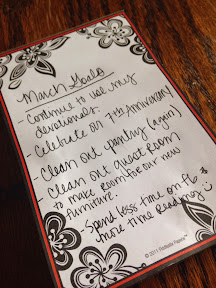 March Goals
- Continue to use my
devotionals.
- Celebrate our 7th Anniversary
- Clean out pantry (again)
- Clean out guest room
to make room for our new
furniture.
- Spend less time on FB
more time Reading
© 2011